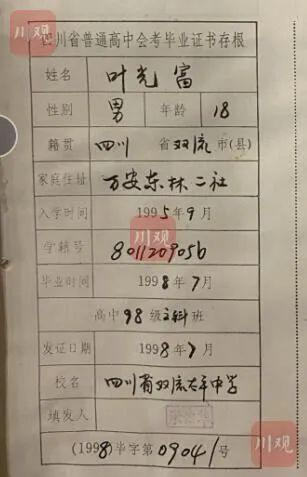 川观
四川省普通高中会考毕业证书存根
姓名 叶光富
性别 男 年龄 18
籍贯 四川 省 双流 市(县)
家庭住址 万安东林二社
入学时间 1995年9月
川观
学籍号 801120905b
毕业时间 1998年7月
高中98级文科班
发证日期 1998年7月
校名 四川省双流太平中学
填发人
川观
(1998)毕字第09041号